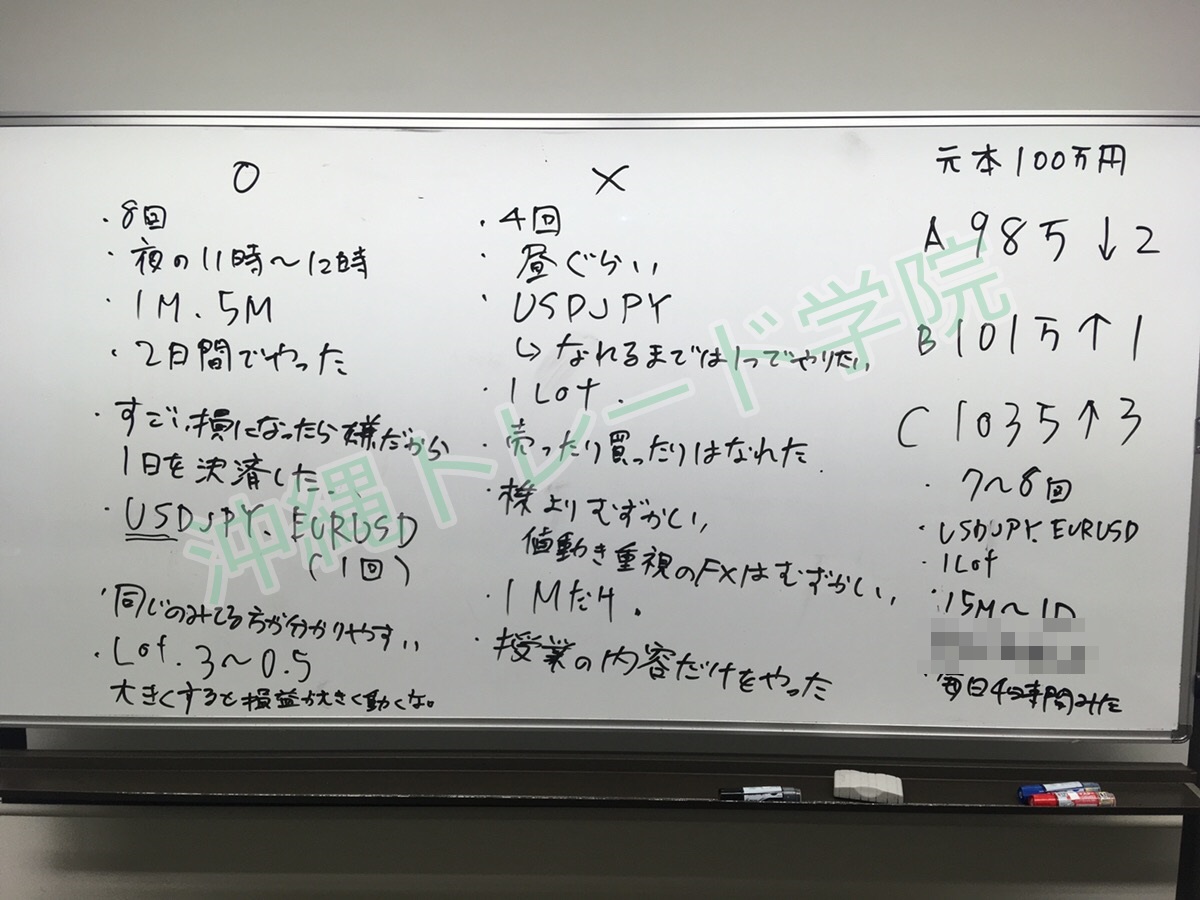 ○
・8回
・夜の11時～12時
・1M.5M
・2日間でやった
・すごい損になったら嫌だから
1日を決済した.
・USDJPY.EURUSD
(1回)
・同じのみてる方が分かりやすい
・Lot.3～0.5
大きくすると損益が大きく動くな。
×
・4回
・昼ぐらい
・USDJPY
↳なれるまでは1つでやりたい
・1Lot.
・売ったり買ったりはなれた.
・株よりむずかしい,
値動き重視のFXはむずかしい,
・1Mだけ.
・授業の内容だけをやった
元本100万円
A 985万↓2
B 101万↑1
C 1035↑3
・7～8回
・USDJPY.EURUSD
・1Lot
・15M～1D
・毎日4時間みた
沖縄トレード学院